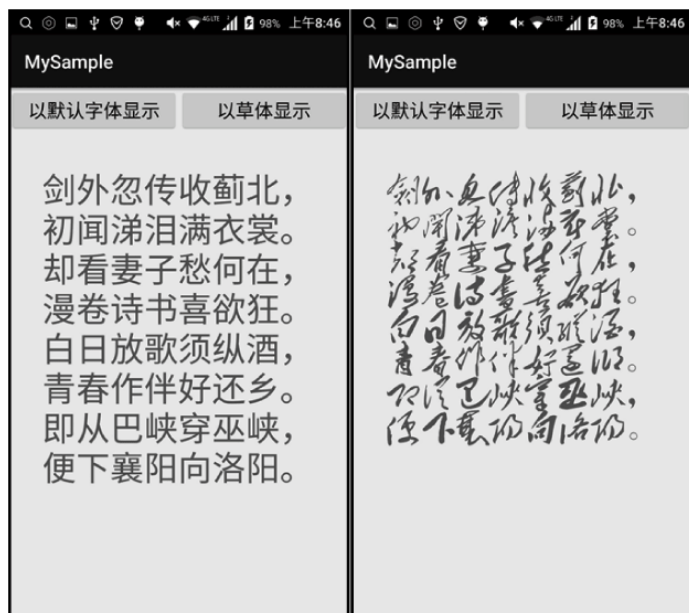 4G LTE 98% 上午8:46
MySample
以默认字体显示 以草体显示
剑外忽传收蓟北，
初闻涕泪满衣裳。
却看妻子愁何在，
漫卷诗书喜欲狂。
白日放歌须纵酒，
青春作伴好还乡。
即从巴峡穿巫峡，
便下襄阳向洛阳。
4G LTE 98% 上午8:46
MySample
以默认字体显示 以草体显示
剑外忽传收蓟北，
初闻涕泪满衣裳。
却看妻子愁何在，
漫卷诗书喜欲狂。
白日放歌须纵酒，
青春作伴好还乡。
即从巴峡穿巫峡，
便下襄阳向洛阳。